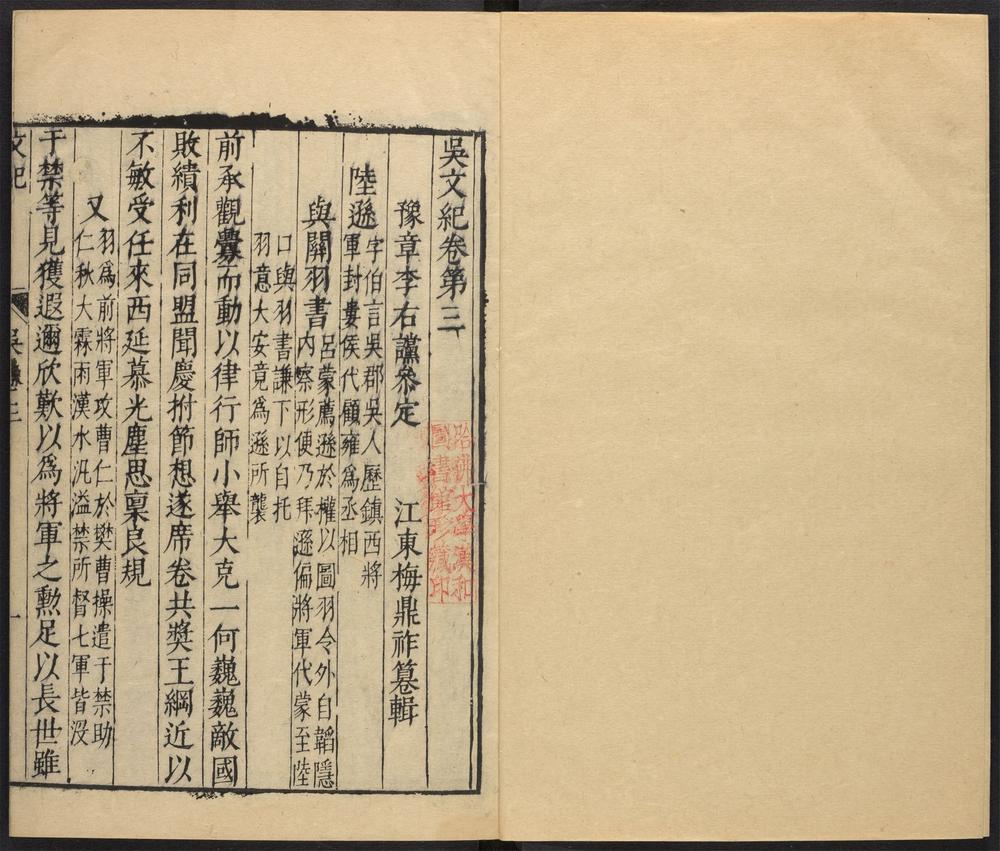 吳文紀卷第三
豫章李右讜叅定　江東梅鼎祚篹輯
陸遜字伯言吳郡吳人歷鎮西將
軍封婁侯代顧雍爲丞相
與關羽書呂蒙薦遜於權以圖羽令外自韜隱
內察形便乃拜遜偏將軍代蒙至陸
口與羽書謙下以自托
羽意大安竟爲遜所襲
前承觀釁而動以律行師小舉大克一何巍巍敵國
敗績利在同盟聞慶拊節想遂席卷共奬王綱近以
不敏受任來西延慕光塵思稟良規
又羽爲前將軍攻曹仁於樊曹操遣于禁助
仁秋大霖雨漢水汎溢禁所督七軍皆沒
于禁等見獲遐邇欣歎以爲將軍之勲足以長世雖
文紀　吳卷三　一
哈佛大學漢和
圖書館珍藏印